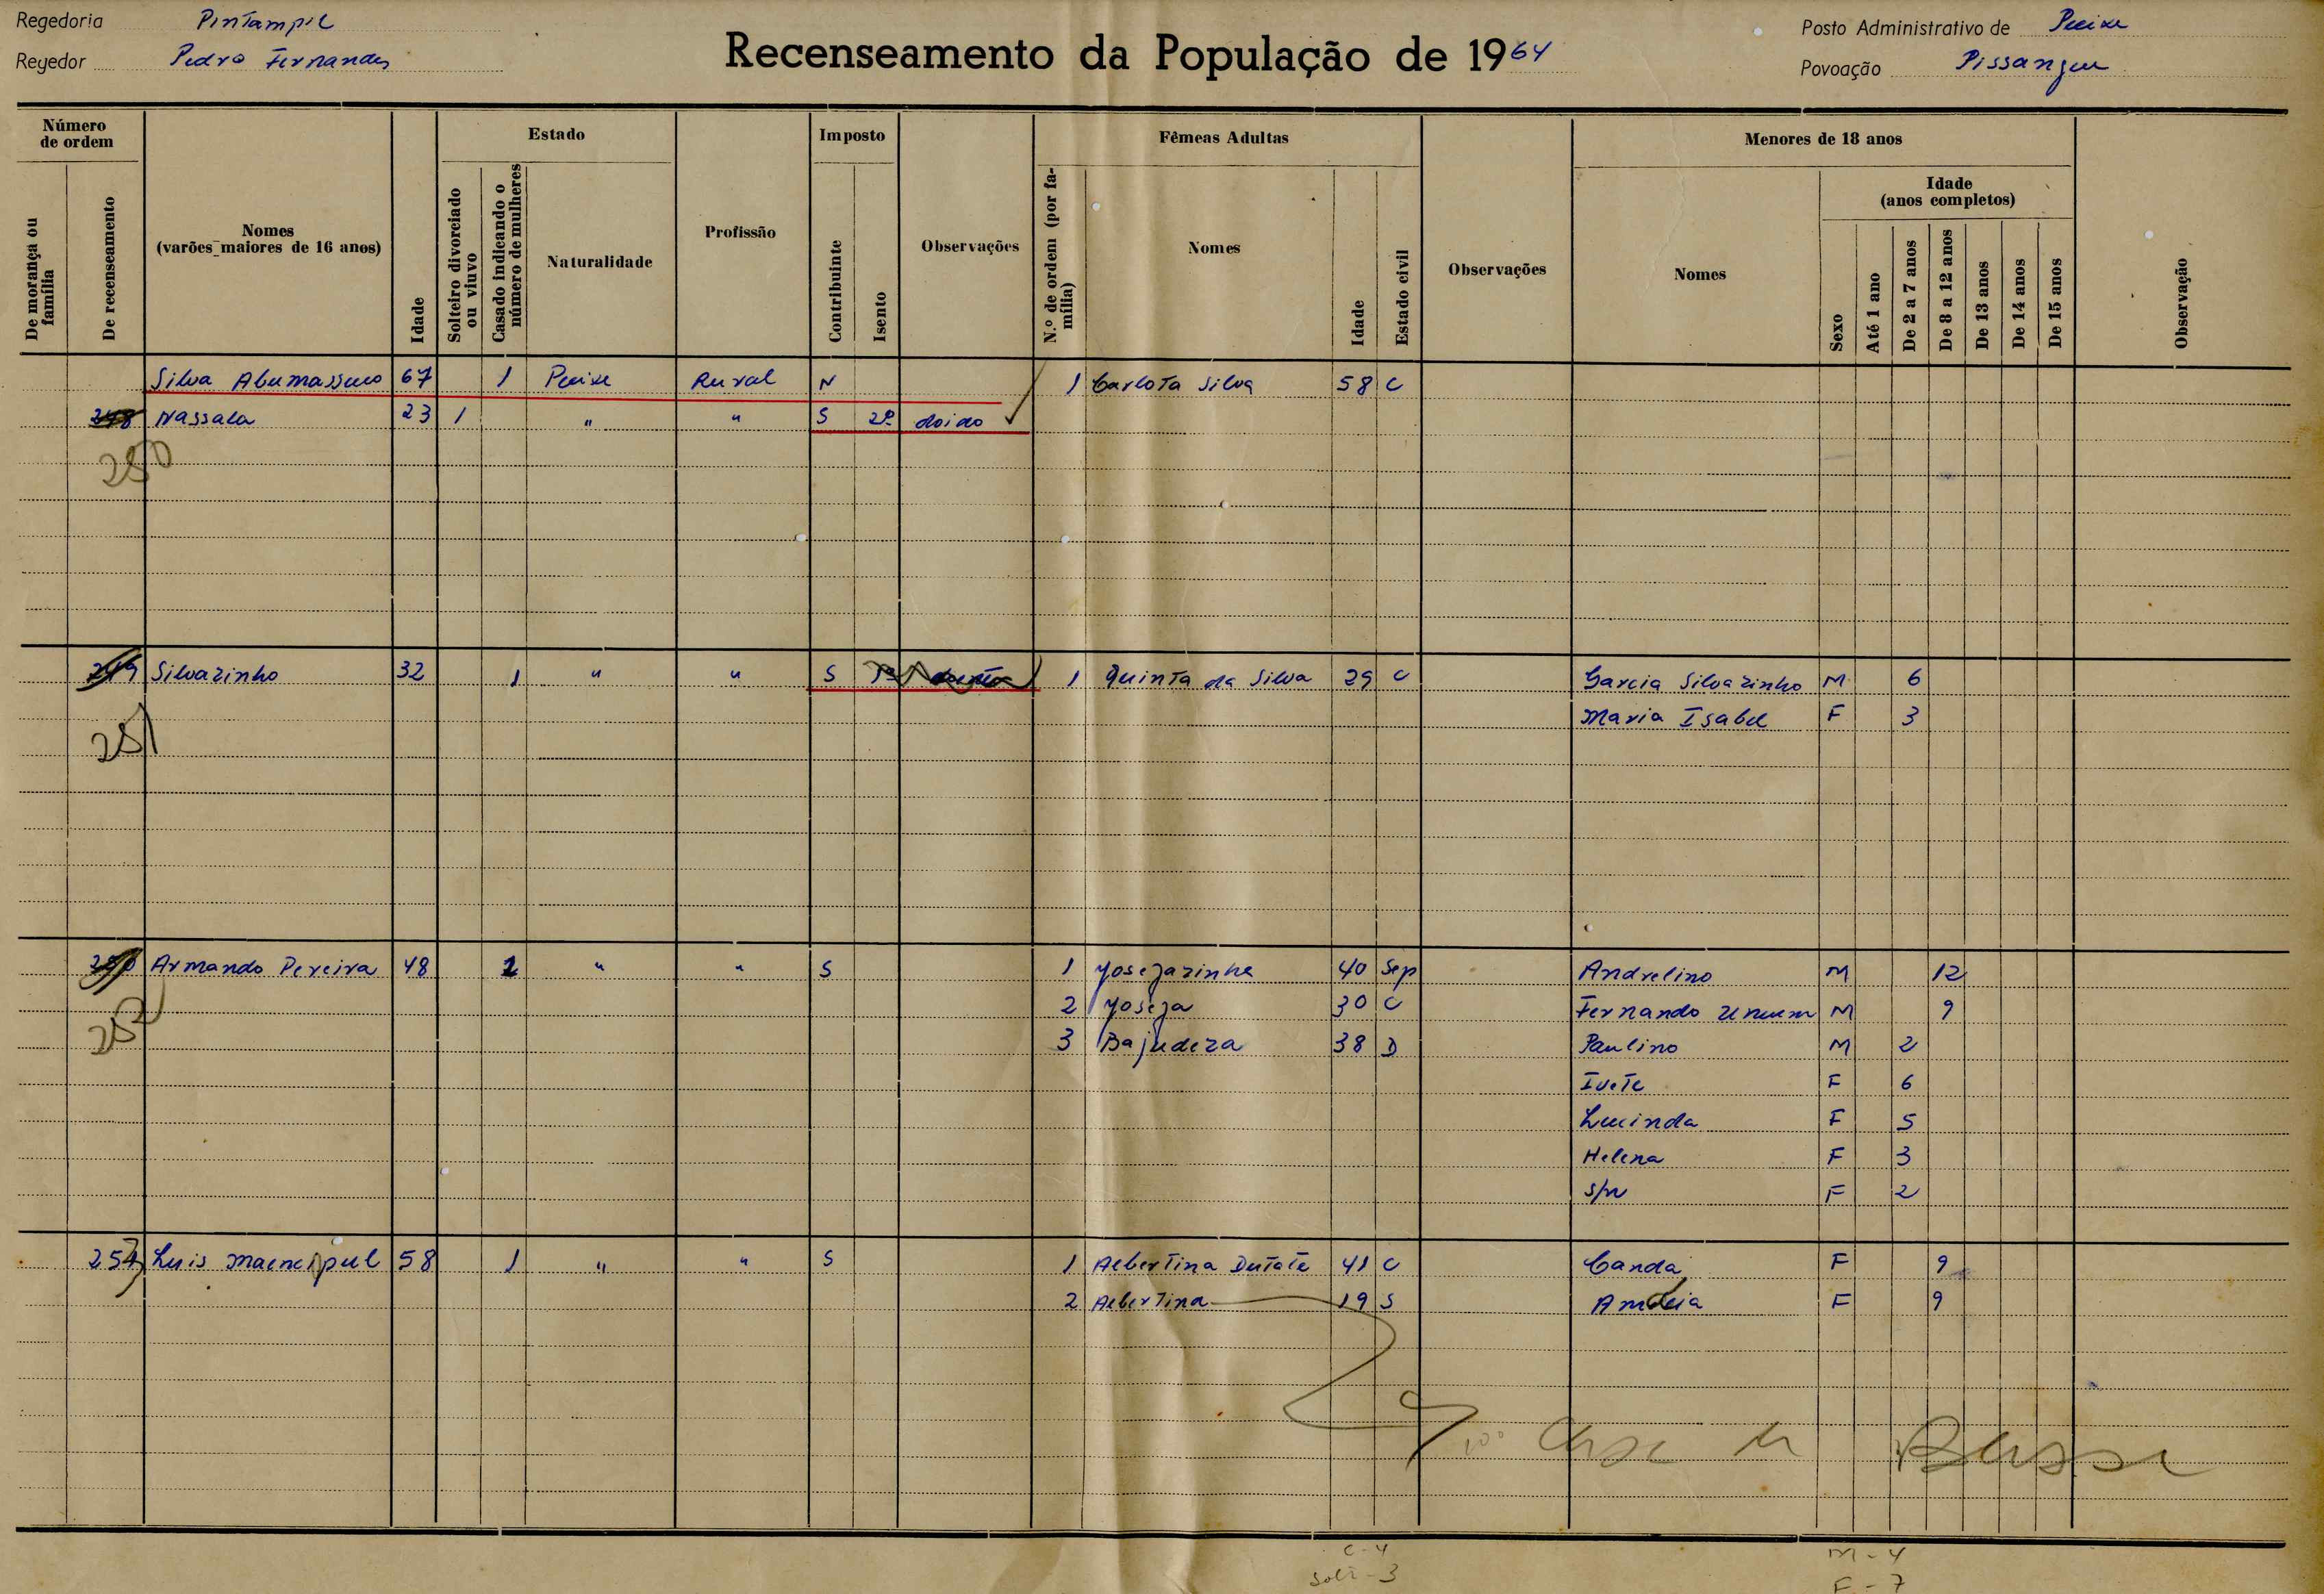 Regedoria Pintampil
Posto Administrativo de Pecixe
Regedor Pedro Fernandes
Recenseamento da População de 1964
Povoação Pissangue
Número de ordem
Estado
Imposto
Fêmeas Adultas
Menores de 18 anos
De morança ou família
De recenseamento
Nomes (varões maiores de 16 anos)
Idade
Solteiro divorciado ou viuvo
Casado indicando o número de mulheres
Naturalidade
Profissão
Contribuinte
Isento
Observações
N.º de ordem (por família)
Nomes
Idade
Estado civil
Observações
Nomes
Idade (anos completos)
Sexo
Até 1 ano
De 2 a 7 anos
De 8 a 12 anos
De 13 anos
De 14 anos
De 15 anos
Observação
Silva 67 1 Pecixe Rural N 1 Carlota Silva 58 C
248 Nassala 23 1 " " S 2º doido
250
249 Silvazinho 32 1 " " S 1 Quinta da Silva 29 C Garcia Silvazinho M 6
Maria Isabel F 3
251
250 Armando Pereira 48 2 " " S 1 Yosezazinha 40 Sep Andrelino M 12
2 Yoseza 30 C Fernando M 9
252 3 Bajudeza 38 D Paulino M 2
Ivete F 6
Lucinda F 5
Helena F 3
S/n F 2
Luis 58 1 " " S 1 Albertina Dutate 41 C Canda F 9
2 Albertina 19 S F 9
casa
C - 4
Solt - 3
M - 4
F - 7